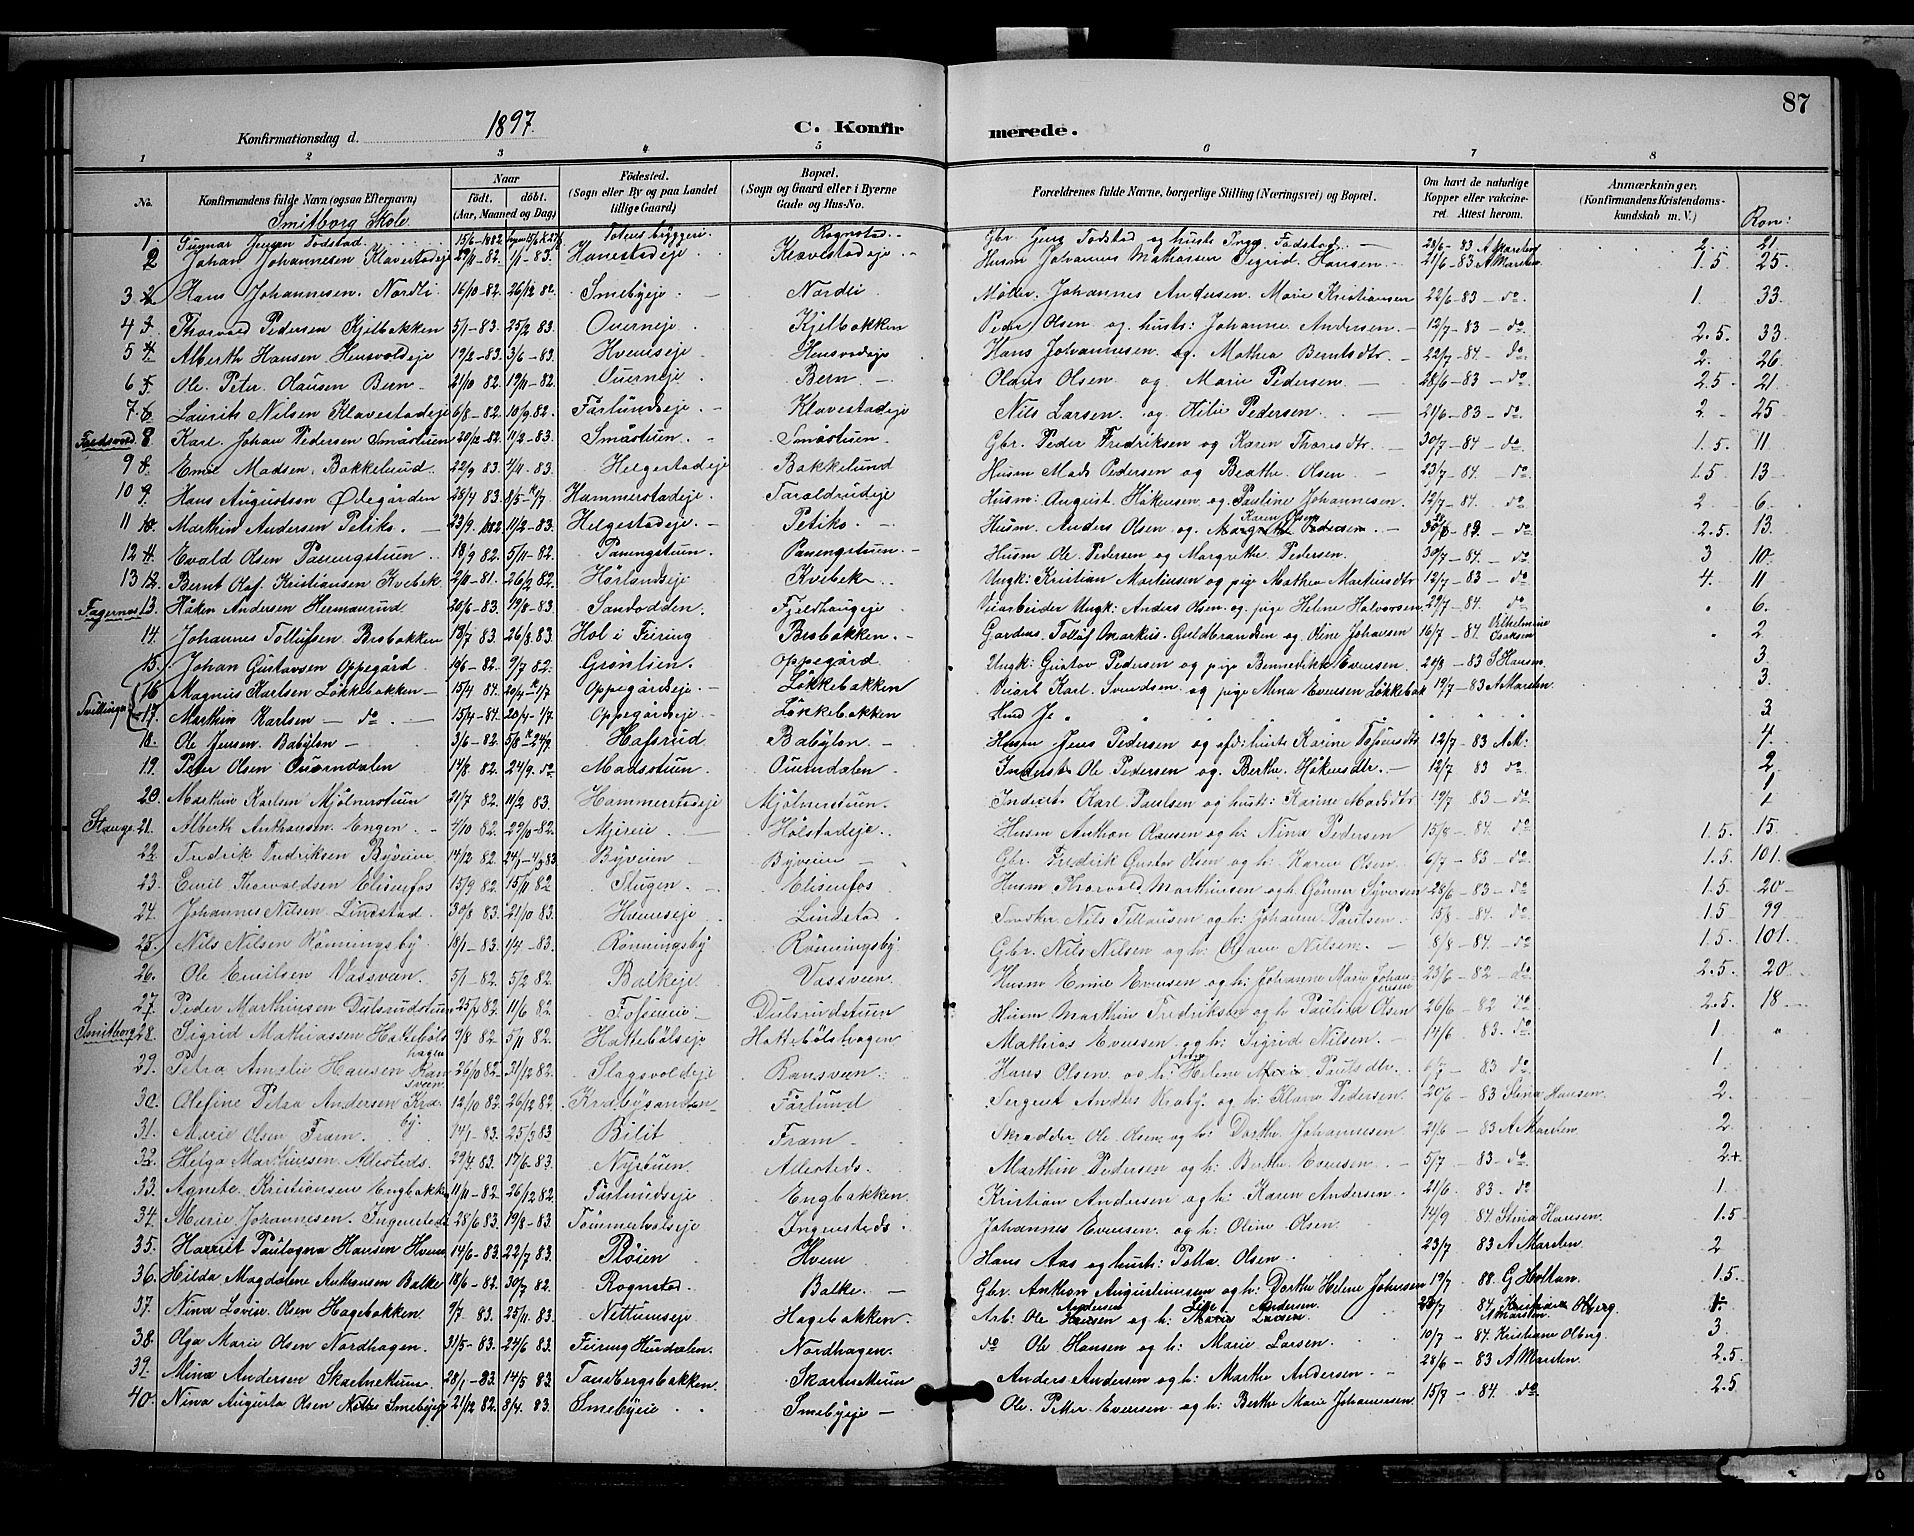 87
Konfirmationsdag d. 1897. C. Konfirmerede.
1 2 3 4 5 6 7 8
No. Konfirmandens fulde Navn (ogsaa Efternavn) Naar født, døbt. (Aar, Maaned og Dag) Födested. (Sogn eller By og paa Landet tillige Gaard) Bopæl. (Sogn og Gaard eller i Byerne Gade og Hus-No. Forældrenes fulde Navne, borgerlige Stilling (Næringsvei) og Bopæl. Om havt de naturlige Kopper eller vaccineret. Attest herom. Anmærkninger. (Konfirmandens Kristendomskundskab m. V.) Ron:
Smitborg Skole
1. Gunnar Jensen Fodstad 15/6-1882 Totens bryggeri. Rognstad. Gbr. Jens Fodstad og hustr Inga Fodstad. 28/6-83 A Marsten 2. 21.
2 Johan Johannesen Klavestadeje 29/11-82. 1/1-83. Hanestadeje Klavestadeje Husm Johannes Mathiassen Sigrid Hansen 21/6-83 A Marsten 1.5 25.
3 Hans Johannesen. Nordli 16/10-82. 26/12 82 Smebyeje. Nordli. Moder. Johannes Andersen. Marie Kristiansen 22/6-83-do 1. 33.
4 Thorvald Pedersen Kjelbakken 5/1-83. 25/2 83. Overneje Kjelbakken Peder Olsen og hustr: Johanne Andersen 12/7-83-do 2.5. 33.
5 Alberth Hansen Hensvoldeje 19/2-83. 3/6-83. Hvemseje Hensvoldeje Hans Johannesen og Mathea Berntsdtr. 22/7-84.-do 2. 26
6 Ole Peter Olausen Bern 21/10 82. 19/11-82. Overneje. Bern Olaus Olsen og Marie Pedersen. 28/6-83-do 2.5 21.
7 Laurits Nilsen Klavestadeje 6/8-82. 10/9 82. Farlundseje. Klavestadeje Nils Larsen og Pedersen. 21/6-83-do 2 25
8. Karl Johan Pedersen Småstuen 20/12-82. 11/2-83. Småstuen. Småstuen. Gbr. Peder Fredriksen og Karen Thoresdtr. 30/7-84-do 1.5. 11.
9 Emil Madsen. Bakkelund. 22/9 83. 4/11-83. Helgestadeje Bakkelund Husm Mads Pedersen og Beathe Olsen 23/7-84.-do 1.5 13
10 Hans Augustsen Ødegården 28/4 83. 8/5- 1/7. Hammerstadeje. Taraldrudeje Husm: August Håkensen og Pauline Johannesen. 12/7-84.-do 2 6.
11 Marthin Andersen Petiko. 23/9.1882 11/2-83. Helgestadeje. Petiko. Husm. Anders Olsen og Karen Olsen 83-do 2.5. 13.
12 Evald Olsen Panengstuen 18/9 82. 5/11-82. Panengstuen. Panengstuen. Husm Ole Pedersen og Margrethe Pedersen. 30/7-84.-do 3 10.
13 Bernt Olaf Kristiansen Kvebek 2/11-81. 26/2 82. Hørlandseje. Kvebek Ungk: Kristian Martinsen og pige Mathea Martinsdtr 12/7-83-do 4. 11
Fagernes 13. Håken Andersen Hermanrud 20/6-83. 19/8-83. Sandodden. Fjeldhaugeje Veiarbeider Ungk: Anders Olsen og pige Helene Halvorsen. 29/7-84. do 6.
14. Johannes Tollefsen Brobakken 13/7 83. 26/8 83. Hol i Feiring Brobakken. Gardens Tollef Markus Guldbrandsen og Oline Johansen 16/7-84. Vilhelmine 2.
15. Johan Gustavsen Oppegård 19/6-82. 9/7 82. Grøntlien. Oppegård Ungk: Gustav Pedersen og pige Bennedikte Evensen. 29/8-83 S Hansen 3.
Tvillinger 16 Magnus Karlsen Løkkebakken 15/4 84. 20/4- 1/7 Oppegårdseje. Løkkebakken Veiarb Karl Svendsen og pige Mina Evensen Løkkebak 19/7-83 A Marsten. 3.
17. Marthin Karlsen do. 15/4-84. 20/4-1/7. Oppegårdseje. Løkkebakken 3.
18. Ole Jensen. Babylon 3/6-82. 5/8- 24/9. Hafsrud Babylon. Husm Jens Pedersen og hustr Karine 12/7-83 A M: 4.
19. Peter Olsen Overndalen 14/8. 82. 24/9. do Madsstuen. Overndalen. Inderst Ole Pedersen og Berthe Håkensdtr. 12/7 83 do 2.
20. Marthin Karlsen Mjølnerstuen 21/7 82. 11/2 83. Hammerstadeje Mjølnerstuen. Inderst Karl Paulsen og hustr: Karine Madsdtr 19/7 83-do 1
Stange 21. Alberth Anthonsen Engen. 4/10 82. 29/10-82. Mjøreie. Hølstadeje. Husm Anthon Olausen og h: Nina Pedersen 15/8-84. do 1.5. 15.
22. Fredrik Fredriksen Byveien 14/12 82. Byveien Byveien Gbr. Fredrik Gustav Olsen og h: Karine Olsen. 6/7-83-do 1.5. 101.
23. Emil Thorvaldsen Elisenfos 15/9 82. 15/11 82 Stugen. Elisenfos Husm Thorvald Marthinsen og h. Gunner Syversen 28/6-83-do 1.5 20
24. Johannes Nilsen Lindstad. 30/8 83. 21/10 83. Hvemseje. Lindstad. Nils Tellausen og h: Johanne Paulsen. 15/8-84. do 1.5 99
25. Nils Nilsen Rønningsby. 18/1-83. 1/4-83. Rønningsby Rønningsby. Gbr. Nils Nilsen og h: Olsen Nilsen. 8/8-84. do 1.5. 101.
26. Ole Emilsen Vassveen. 5/1-82. 5/2 82. Balkeje. Vassveen Husm Emil Evensen og h: Johanne Marie Johannesen 23/6-82 do 2.5. 20.
27. Peder Marthinsen Dulsrudstuen 25/3 82. 11/6 82. Fossneie Dulsrudstuen Husm Marthin Fredriksen og h Paulina Olsen 26/6-82 do 2.5. 18
Smitborg 28. Sigrid Mathiassen Hattebølshagen 9/8 82. 5/11 82. Hattebølseje Hattebølshagen Mathias Evensen og h: Sigrid Nilsen. 14/6 83. do 1
29. Petra Amalie Hansen Ransveen 26/10 82. 31/12 82. Slagsvoldeje Ransveen. Hans Olsen og h: Helene Paulsdtr. 6/7-83 do 1.
30. Olefine Petra Andersen Kraby. 12/10 82. 26/12 82. Krabysanden Farlund Sergent Anders Kraby. og h: Klara Pedersen. 20/6-83 Stina Hansen. 2.
31. Marie Olsen Fram. 14/1-83. 25/3 83. Bilit Fram Skrædder Ole Olsen og h: Dorthe Johannesen 21/6-83 A Marsten 2
32. Helga Marthinsen Allesteds. 29/4. 83. 17/6-83. Nystuen. Allesteds. Marthin Pedersen og h: Berthe Evensen. 5/7-83-do 2+
33. Agnete Kristiansen Engbakken 11/11-82. 26/12 82. Farlundseje Engbakken. Kristian Andersen og h: Karen Andersen. 21/6. 83. do 1.
34. Marie Johannesen Ingensteds. 28/6 83. 19/8-83. Tømmerholseje Ingensteds. Johannes Evensen. og h: Oline Olsen. 14/9 84 Stina Hansen. 1.5
35. Harriet Paulogna Hansen Hvem 14/6-83. 22/7 83. Pløien Hvem Hans Aas og hustr: Petra Olsen. 23/7 83 A Marsten. 2
36. Hilda Magdalene Anthonsen Balke 18/6-82. 30/7 82. Rognstad. Balke. Gbr. Anthon Augustinusen og h: Dorthe Helene Johansen 19/7 88. G Holtan. 1.5.
37. Nina Lovise Olsen Hagebakken. 9/7 83. 25/11 83. Nettumseje Hagebakken. Arb: Ole Andersen og h: Line Andersen 84. Kristiane Olberg. A Marsten
38. Olga Marie Olsen Nordhagen. 31/5-83. 24/6 83. Feiring Hurdalen. Nordhagen. do Ole Hansen og h: Marie Larsen. 10/7-84. Kristiane Olberg. 3
39. Mina Andersen Skartnettum. 28/1-83. 14/5 83. Tausbergsbakken. Skartnettum Anders Andersen og h: Marthe Andersen. 28/6-83 A Marsten. 2.5.
40. Nina Augusta Olsen Smebyeje 21/12 82. 8/4. 83. Smebyeie Smebyeje Ole Petter Evensen og h: Berthe Marie Johannesen. 15/7-84. do 2.5